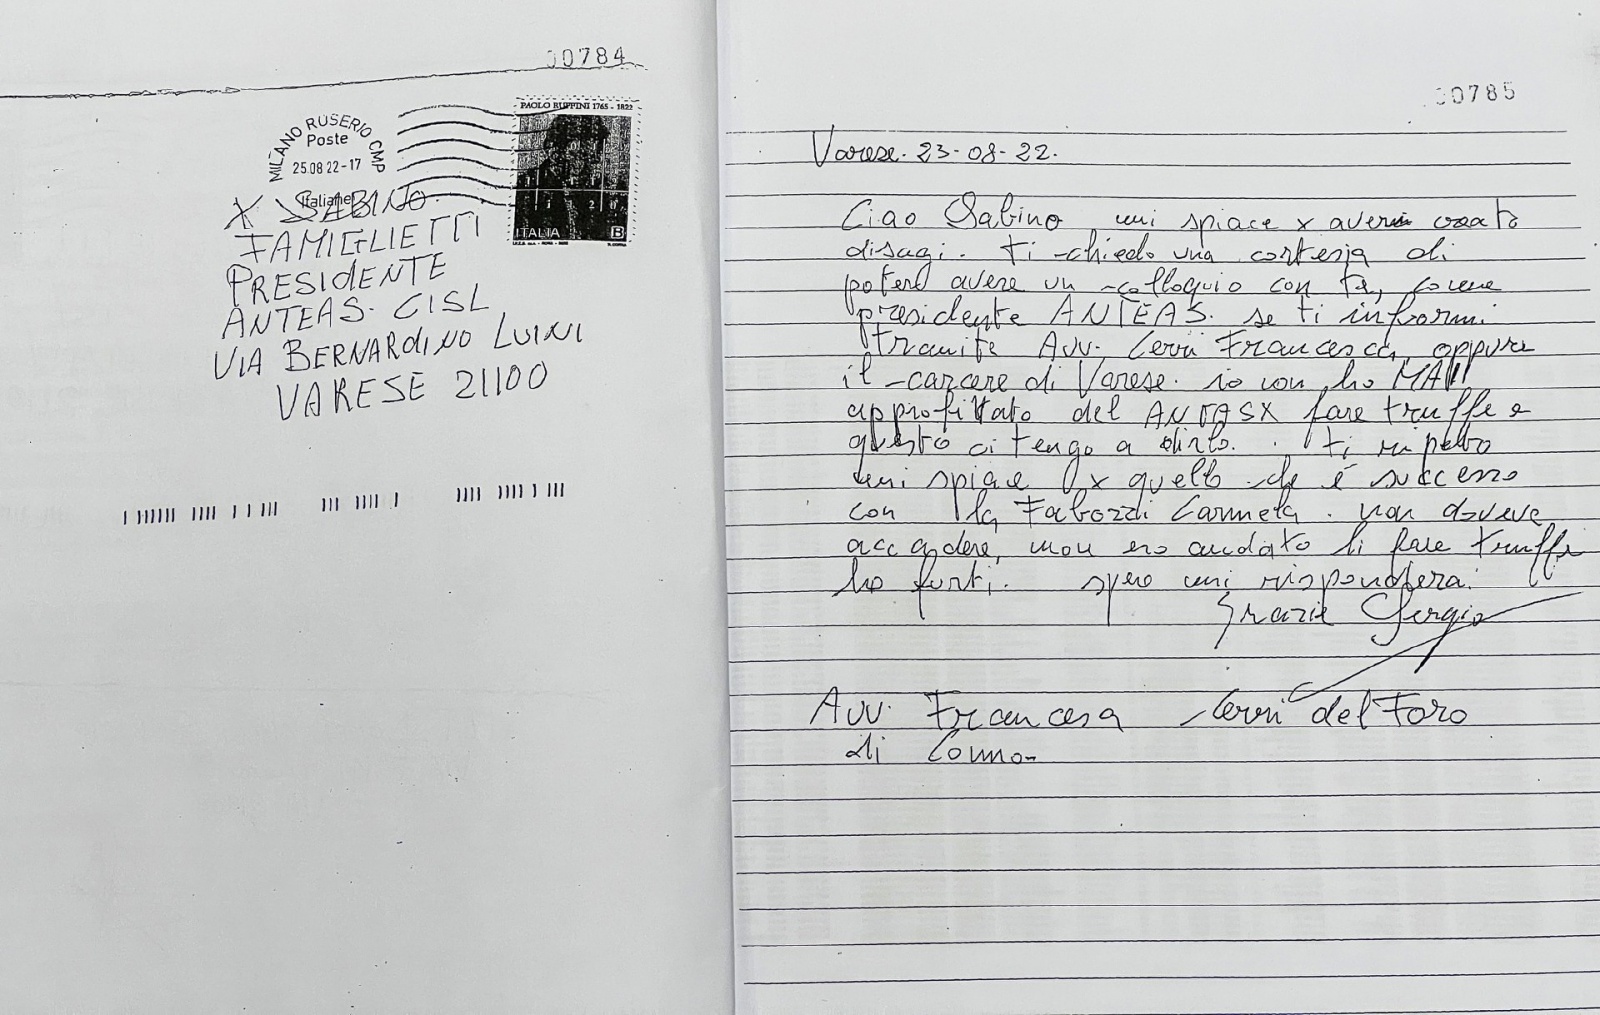 00784
PAOLO RUFFINI 1765 - 1822
MILANO ROSERIO CMP
Poste
25.08 22-17
Italiane
ITALIA B
X SABINO
FAMIGLIETTI
PRESIDENTE
ANTEAS. CISL
VIA BERNARDINO LUINI
VARESE 21100
00785
Varese. 23-08-22.
Ciao Sabino mi spiace x averti creato
disagi. Ti chiedo una cortesia di
potere avere un colloquio con te, come
presidente ANTEAS. se ti informi
tramite Avv. Cerri Francesca, oppure
il carcere di Varese. io non ho MAI
approfittato del ANTAS X fare truffe e
questo ci tengo a dirlo. ti ripeto
mi spiace x quello che é successo
con la Fabozzi Carmela. non doveva
accadere, non ero andato li fare truffe
ho furti. spero mi risponderai
Grazie Sergio
Avv. Francesca Cerri del Foro
di Como-